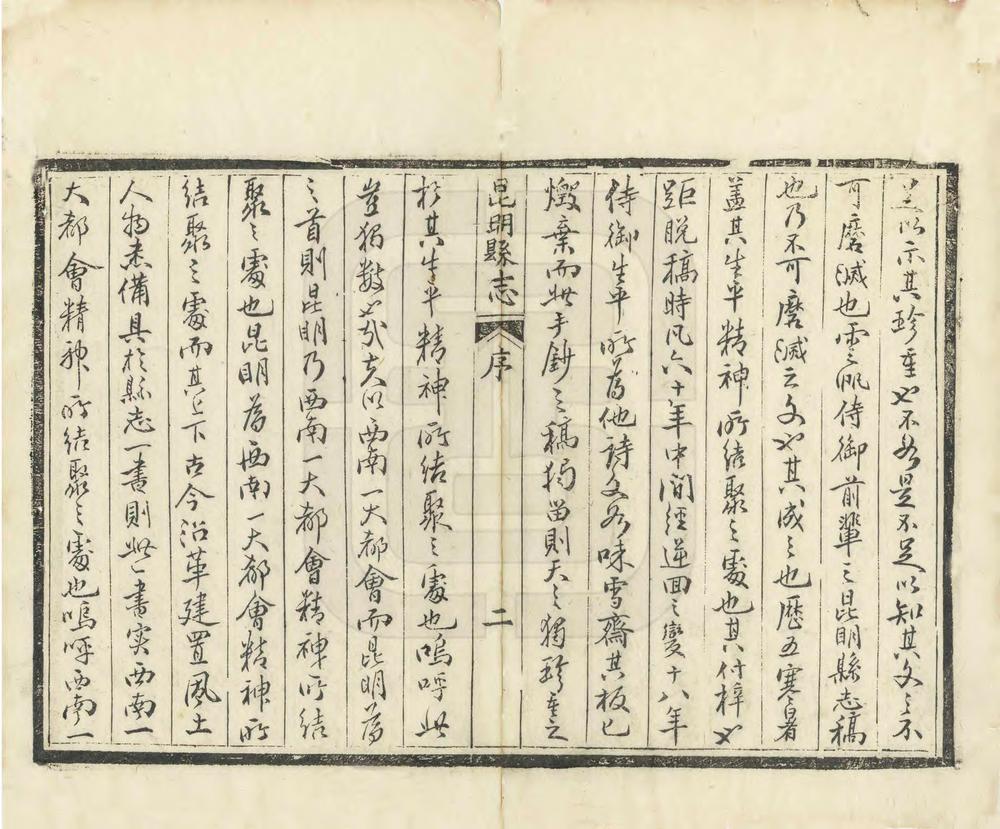 足以示其珍重也不如是不足以知其文之不
可磨滅也雲帆侍御前輩之昆明縣志稿
也乃不可磨滅之文也其成之也歷五寒暑
蓋其生平精神所結聚之處也其付梓也
距脫稿時凡六十年中閒經逆回之變十八年
侍御生平所著他詩文如味雪齋其板已
燬棄而此手鈔之稿獨留則天之獨珍重之
昆明縣志 序 二
於其生平精神所結聚之處也嗚呼此
豈獨數也哉夫以西南一大都會而昆明為
之首則昆明乃西南一大都會精神所結
聚之處也昆明為西南一大都會精神所
結聚之處而其上下古今沿革建置風土
人物悉備具於縣志一書則此一書實西南一
大都會精神所結聚之處也嗚呼西南一